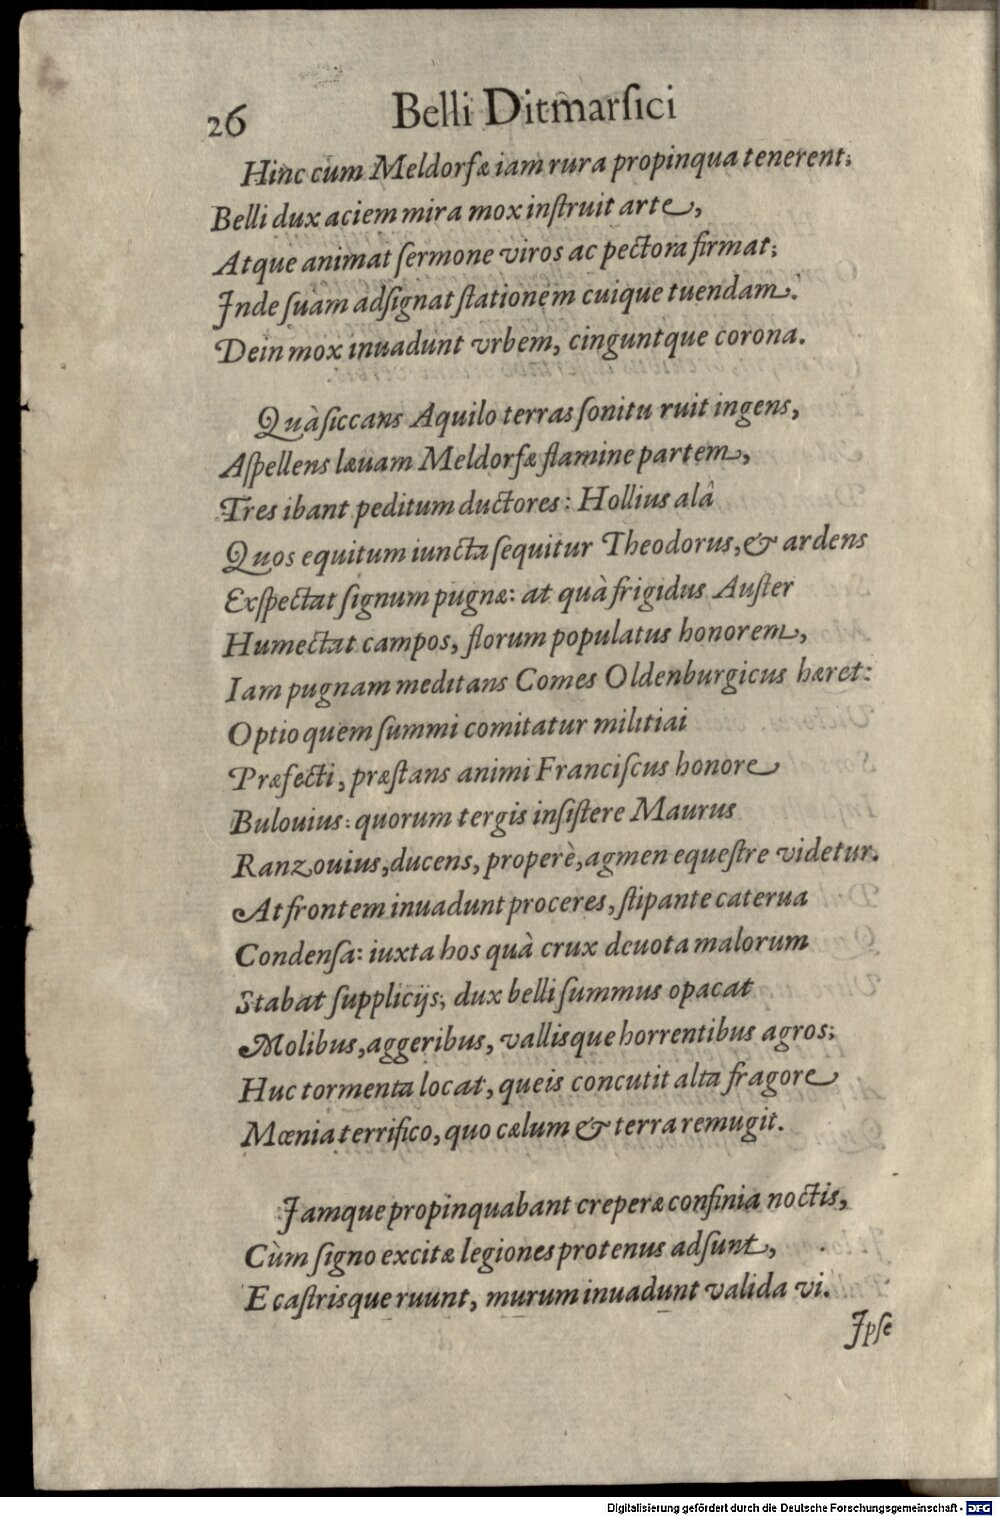 26 Belli Ditmarſici
Hinc cum Meldorfæ iam rura propinqua tenerent;
Belli dux aciem mira mox inſtruit arte,
Atque animat ſermone viros ac pectora firmat;
Inde ſuam adſignat ſtationem cuique tuendam.
Dein mox inuadunt vrbem, cinguntque corona.
Quà ſiccans Aquilo terras ſonitu ruit ingens,
Aſpellens læuam Meldorfæ flamine partem,
Tres ibant peditum ductores: Hollius alâ
Quos equitum iuncta ſequitur Theodorus, & ardens
Exſpectat ſignum pugnæ: at quà frigidus Auſter
Humectat campos, florum populatus honorem,
Iam pugnam meditans Comes Oldenburgicus hæret:
Optio quem ſummi comitatur militiai
Præfecti, præſtans animi Franciſcus honore
Bulouius: quorum tergis inſiſtere Maurus
Ranzouius, ducens, properè, agmen equeſtre videtur.
At frontem inuadunt proceres, ſtipante caterua
Condenſa: iuxta hos quà crux deuota malorum
Stabat ſupplicijs; dux belli ſummus opacat
Molibus, aggeribus, vallisque horrentibus agros;
Huc tormenta locat, queis concutit alta fragore
Mœnia terrifico, quo cælum & terra remugit.
Iamque propinquabant creperæ confinia noctis,
Cùm ſigno excitæ legiones protenus adſunt,
E caſtrisque ruunt, murum inuadunt valida vi.
Ipſe
Digitalisierung gefördert durch die Deutsche Forschungsgemeinschaft - DFG